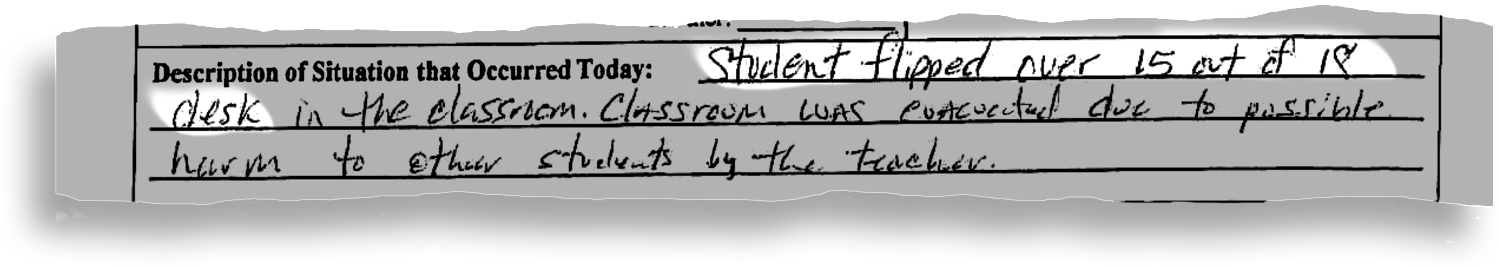 Description of Situation that Occurred Today: Student flipped over 15 out of 18
desk in the classroom. Classroom was evacuated due to possible
harm to other students by the teacher.